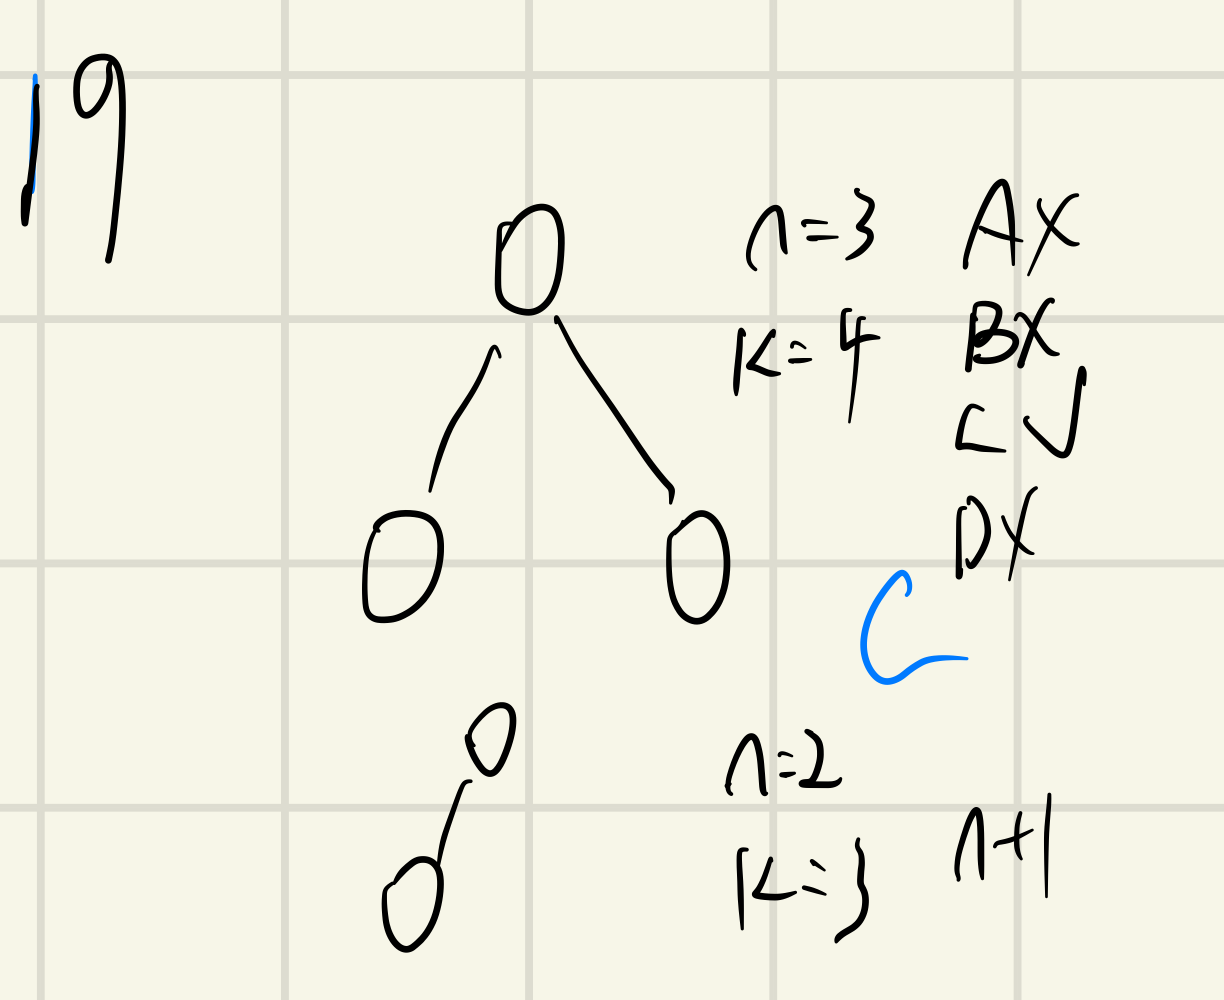 19
n=3 AX
K=4 BX
C✓
DX
C
n=2
K=3 n+1